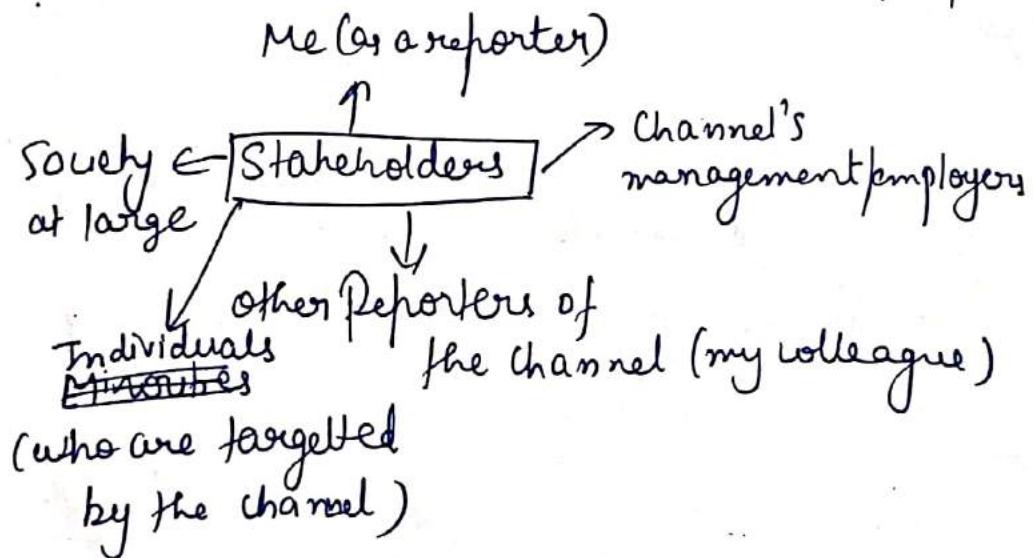 Me (as a reporter)
Society at large
Stakeholders
Channel's
management/employers
other Reporters of
the channel (my colleague)
Individuals
Minorities
(who are targetted
by the channel)